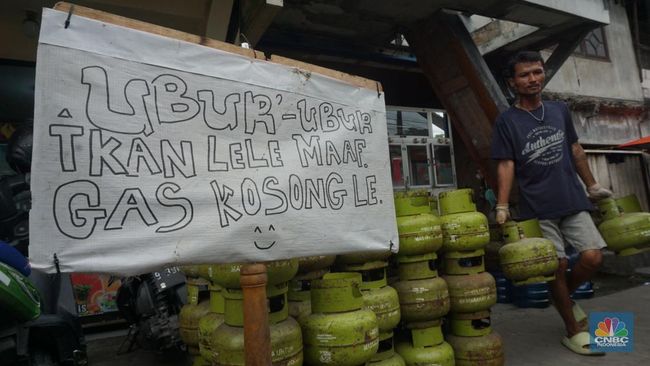 UBUR²-UBUR
IKAN LELE MAAF.
GAS KOSONG LE.
Authentic
CNBC
INDONESIA